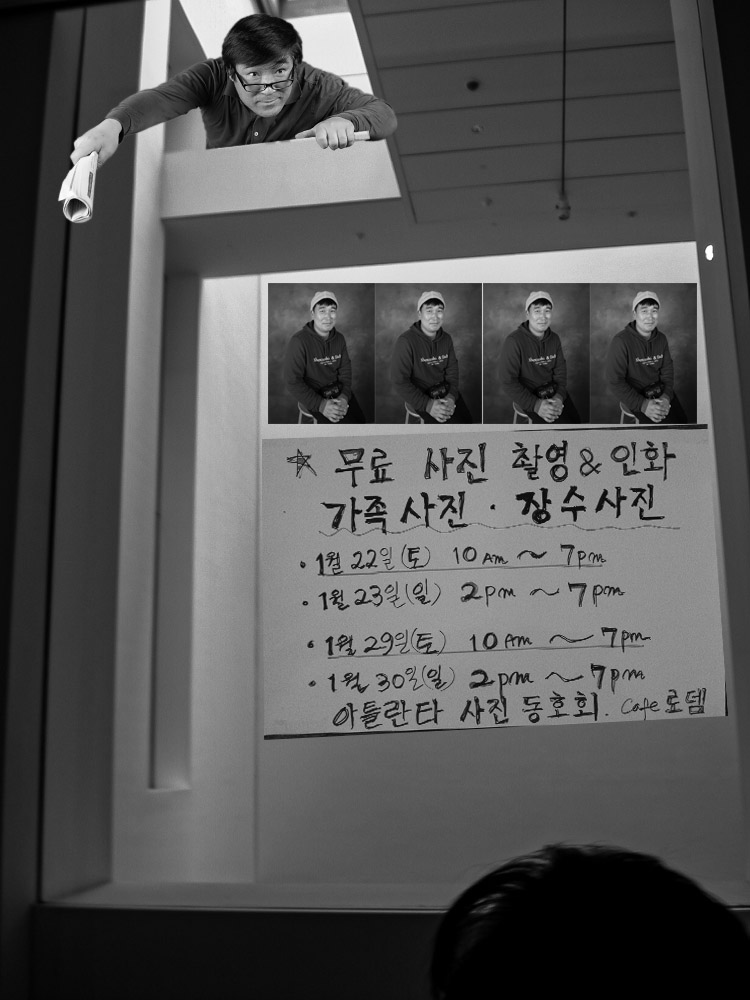 ☆ 무료 사진 촬영 & 인화
가족사진 · 장수사진
• 1월 22일(토) 10 AM ~ 7pm
• 1월 23일(일) 2pm ~ 7pm
• 1월 29일(토) 10 AM ~ 7pm
• 1월 30일(일) 2pm ~ 7pm
아틀란타 사진 동호회. Cafe 로뎀